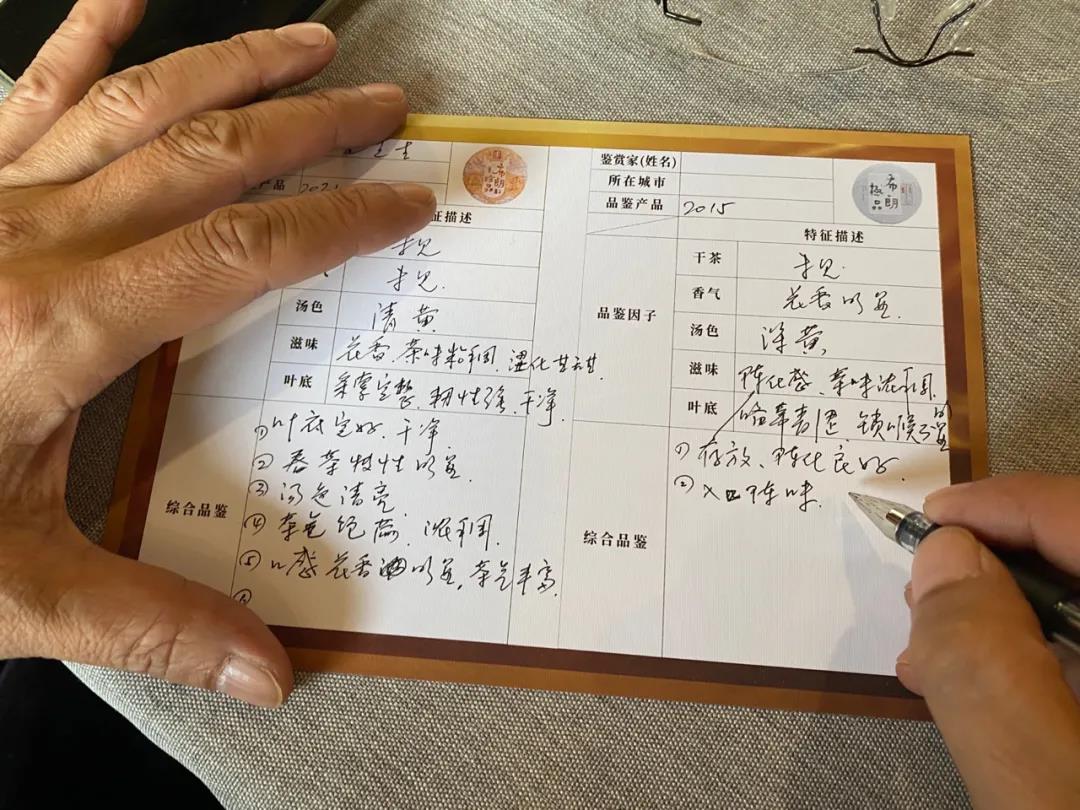 产品 202
征描述
未见
未见.
汤色 清黄
滋味 花香.茶味 甘甜.
叶底 完整.韧性强.干净.
综合品鉴
①叶底完好.干净
②春茶特性明显.
③汤色清亮.
④茶气饱满.
⑤口感花香明显,茶气丰富.
⑥
希朗極品
鉴赏家(姓名)
所在城市
品鉴产品 2015
希朗極品
特征描述
品鉴因子
干茶 未见.
香气 花香明显.
汤色 深黄
滋味 陈化感、茶味浓
叶底 锁喉
综合品鉴
①存放、陈化良好
②入口陈味.